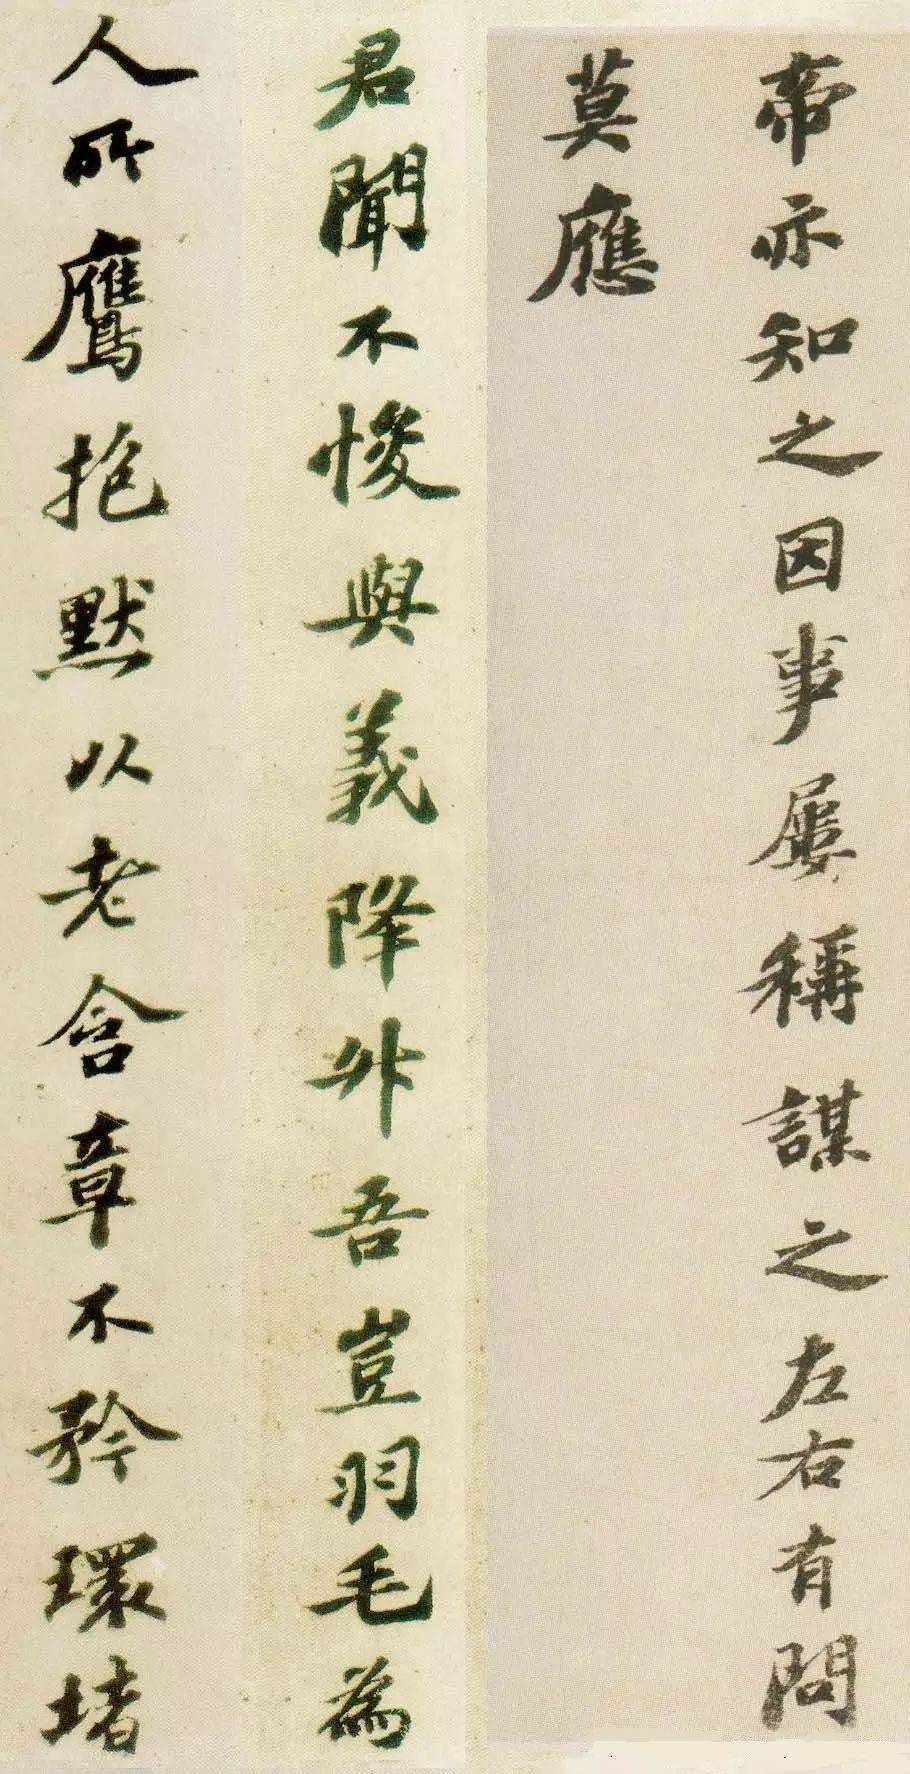 帝亦知之因事屢稱謀之左右有問
莫應
君聞不悛與義降升吾豈羽毛為
人所鷹抱默以老含章不矜環堵